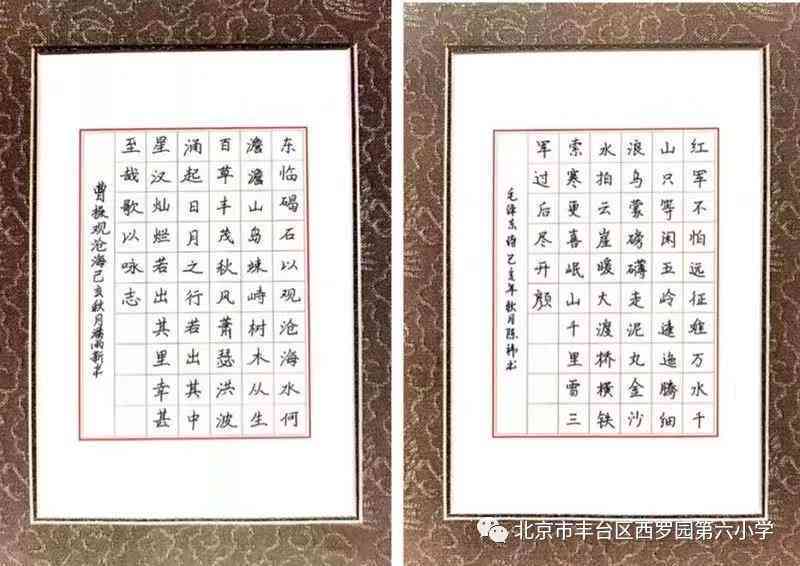 东临碣石以观沧海水何
澹澹山岛竦峙树木从生
百草丰茂秋风萧瑟洪波
涌起日月之行若出其中
星汉灿烂若出其里幸甚
至哉歌以咏志
曹操观沧海己亥秋月雨新书
红军不怕远征难万水千
山只等闲五岭逶迤腾细
浪乌蒙磅礴走泥丸金沙
水拍云崖暖大渡桥横铁
索寒更喜岷山千里雪三
军过后尽开颜
毛泽东诗己亥年秋月陈书
北京市丰台区西罗园第六小学